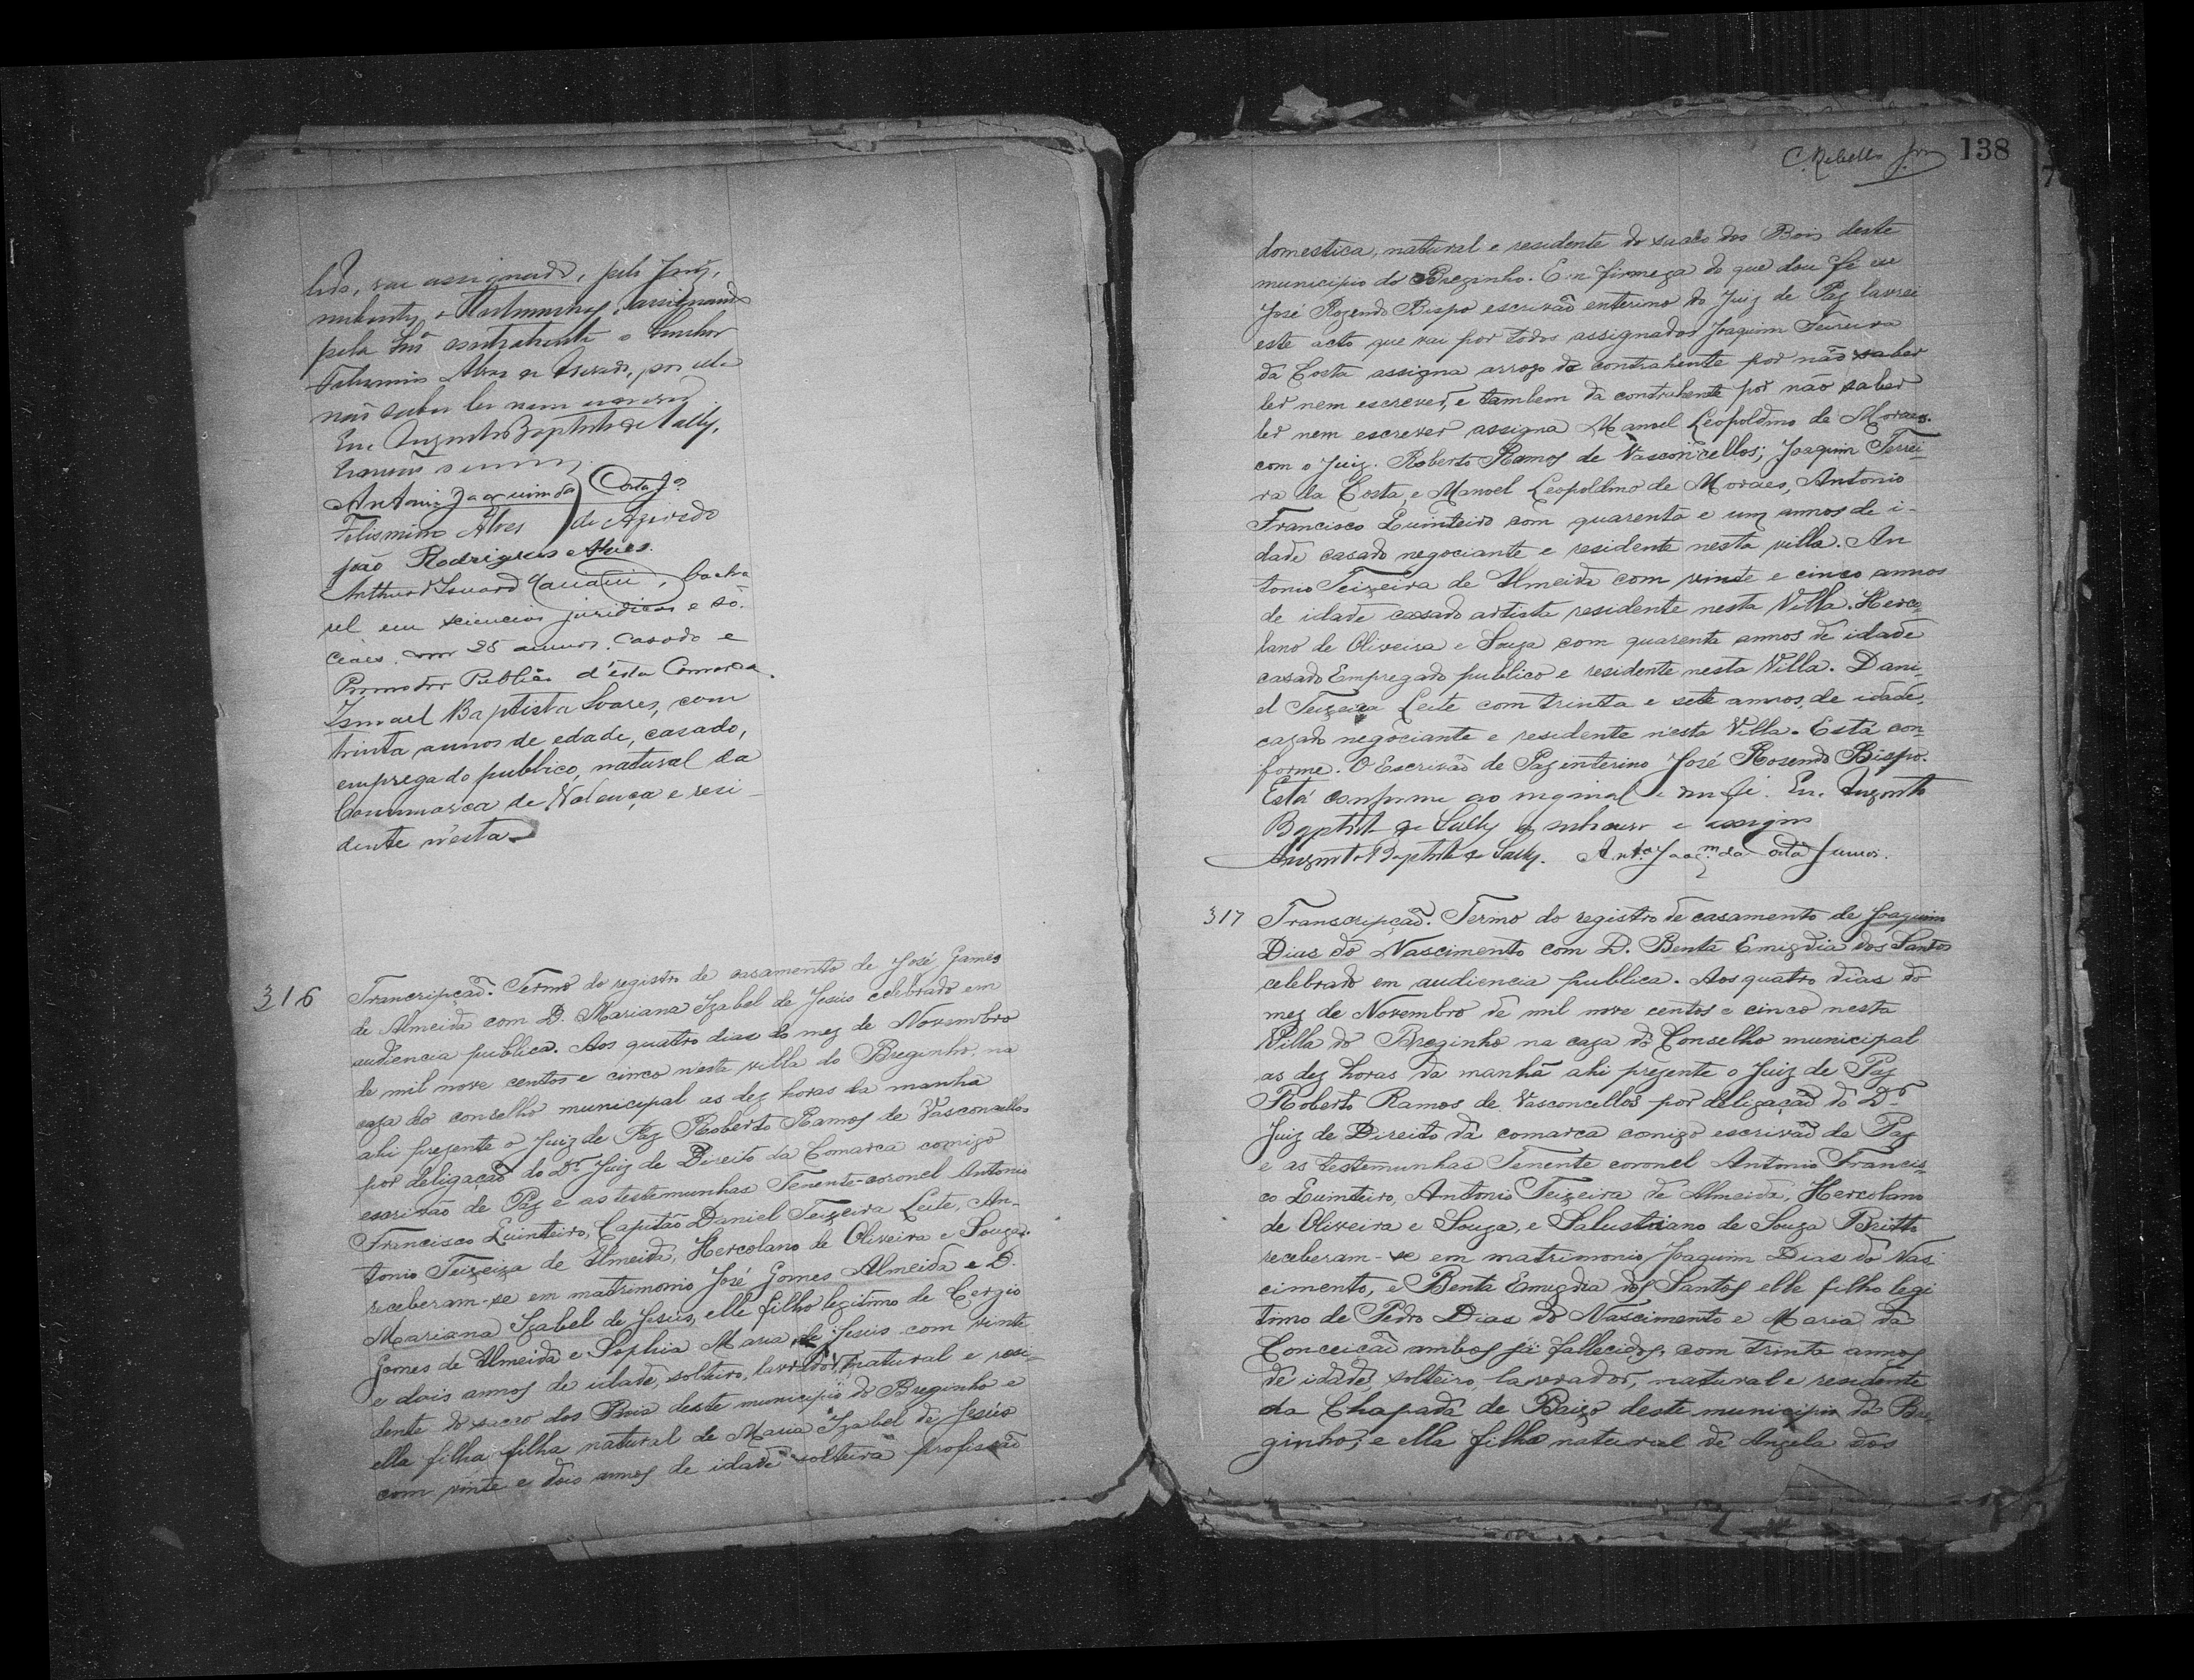 lido, vai assignado, pelo Juiz,
nubentes, e testemunhas, assignando
pela contrahente o Senhor
Felismino Alves de Azevedo, por ella
não saber ler nem escrever
Eu, Augusto Baptista de Sally,
escrivão o escrevi
Antonio Joaquim da Costa Jor
Felismino Alves de Azevedo
João Rodrigues Alves.
Arthur , bacha
rel em sciencias juridicas e so-
ciaes, com 25 annos. Casado e
Promotor Publico d'esta Comarca.
Ismael Baptista Soares, com
trinta annos de edade, casado,
empregado publico, natural da
Commarca de Valença e resi-
dente n'esta
316 Trancripção. Termo do registro de casamento de José Gomes
de Almeida com D. Mariana Izabel de Jesús celebrado em
audiencia publica. Aos quatro dias do mez de Novembro
de mil nove centos e cinco n'esta villa do Breginho, na
caza do conselho municipal as dez horas da manha
ahi prezente o Juiz de Paz Roberto Ramos de Vasconcellos
por deligação do Dr. Juiz de Direito da Comarca comigo
escrivão de Paz e as testemunhas Tenente-coronel Antonio
Francisco Quinteiro, Capitão Daniel Teizeira Leite, An-
tonio Teizeiza de Almeida, Hercolano de Oliveira e Souza.
receberam-se em matrimonio José Gomes Almeida e D.
Mariana Izabel de Jesús, elle filho legitimo de Cergio
Gomes de Almeida e Sophia Maria de Jesus com vinte
e dois annos de idade, solteiro, lavrador, natural e resi-
dente do sacco dos Bois deste municipio do Breginho e
ella filha filha natural de Maria Izabel de Jesús
com vinte e dois annos de idade solteira profissão
C. Rebello Jor 138
domestica, natural e residente do sacco dos Bois deste
municipio do Breginho. E en firmeza do que dou fe eu
José Rozendo Bispo escrivão enterino do Juiz de Paz lavrei
este acto que vai por todos assignados Joaquim Ferreira
da Costa assigna arrogo do contrahente por não saber
ler nem escrever, e tambem da contrahente por não saber
ler nem escrever assigna Manoel Leopoldino de Moraes.
com o Juiz. Roberto Ramos de Vasconcellos; Joaquim Ferrei-
ra da Costa, e Manoel Leopoldino de Moraes, Antonio
Francisco Quinteiro com quarenta e um annos de i-
dade casado negociante e residente nesta villa. An
tonio Teizeira de Almeida com vinte e cinco annos
de idade casado artista residente nesta Villa. Herco-
lano de Oliveira e Souza com quarenta annos de idade
casado Empregado publico e residente nesta Villa. Dani-
el Teizeira Leite com trinta e sete annos, de idade,
cazado negociante e residente n'esta Villa. Está con-
forme. O Escrivão de Paz enterino José Rosendo Bispo.
Está conforme ao original e dou fé. Eu, Augusto
Baptista de Sally o subscrevo e assigno
Augusto Baptista de Sally. Anto Joaqm da Costa Junior.
317 Transcripção. Termo do registro de casamento de Joaquim
Dias do Nascimento com D. Benta Emigdia dos Santos
celebrado em audiencia publica. Aos quatro dias do
mez de Novembro de mil nove centos e cinco nesta
Villa do Breginho na caza do Conselho municipal
as dez horas da manhã ahi prezente o Juiz de Paz
Roberto Ramos de Vasconcellos por deligação do Dr.
Juiz de Direito da comarca comigo escrivão de Paz
e as testemunhas Tenente coronel Antonio Francis-
co Quinteiro, Antonio Teizeira de Almeida, Hercolano
de Oliveira e Souza, e Salustriano de Souza Britto
receberam-se em matrimonio Joaquim Dias do Nas-
cimento, e Benta Emigdia dos Santos elle filho legi
timo de Pedro Dias do Nascimento e Maria da
Conceicão ambos já fallecidos, com trinta annos
de idade, solteiro, lavrador, natural e residente
da Chapada de Baizo deste municipio do Bre
ginho, e ella filha natural de Angela dos